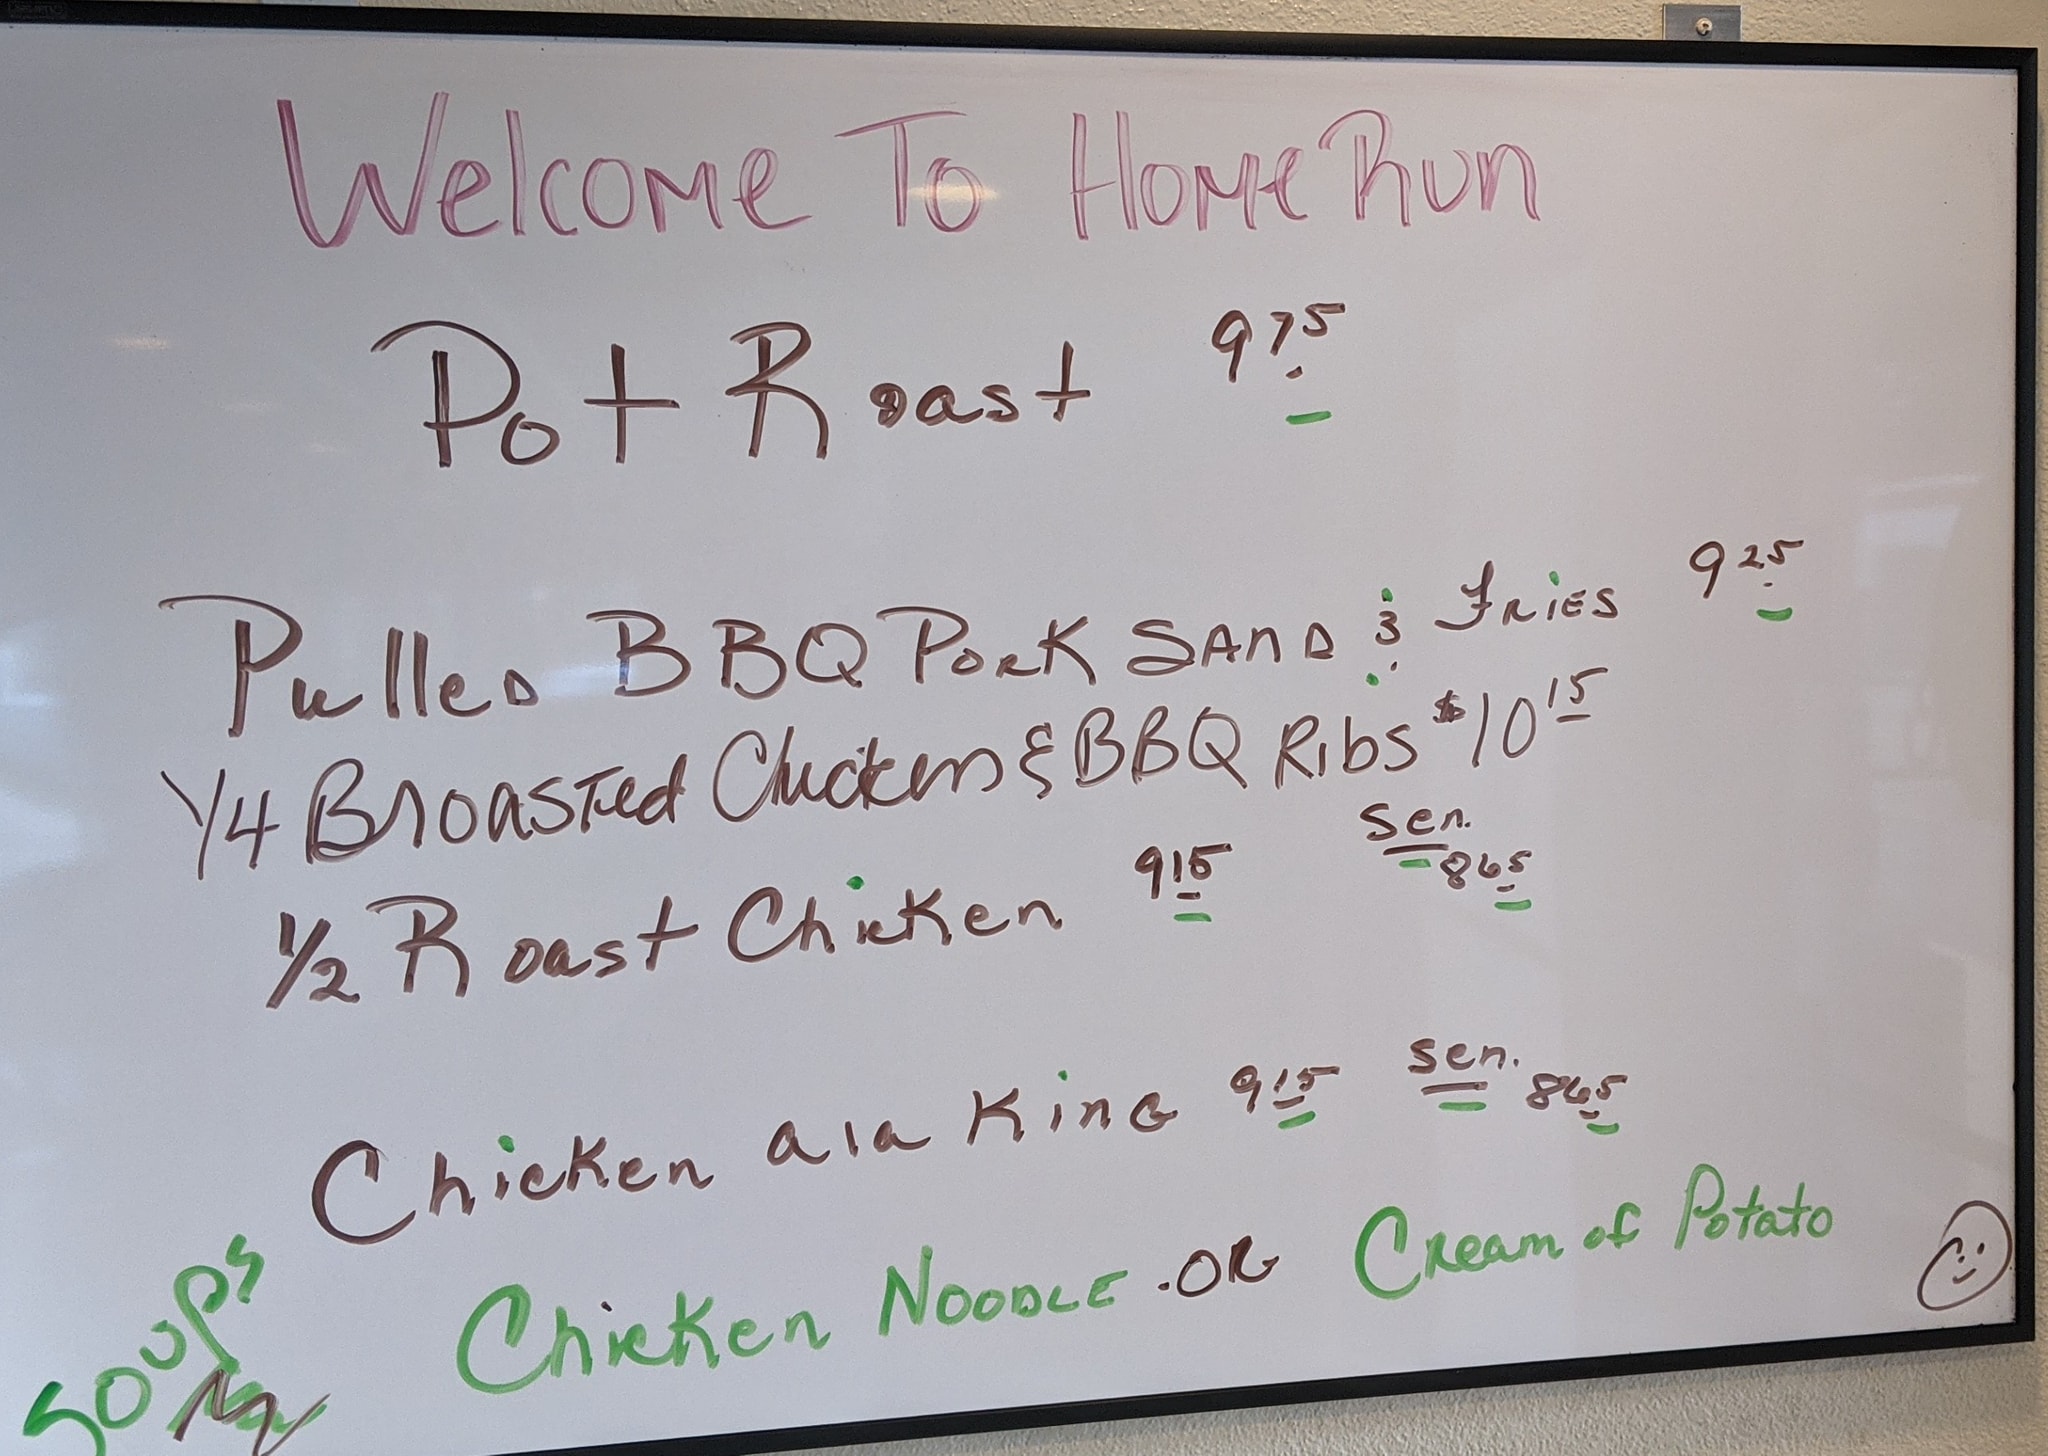 Welcome To Home Run
Pot Roast 975
Pulled BBQ Pork Sand & Fries 925
1/4 Broasted Chicken & BBQ Ribs $1015
1/2 Roast Chicken 915 Sen. 865
Chicken ala King 915 Sen. 865
Soups Chicken Noodle .or Cream of Potato